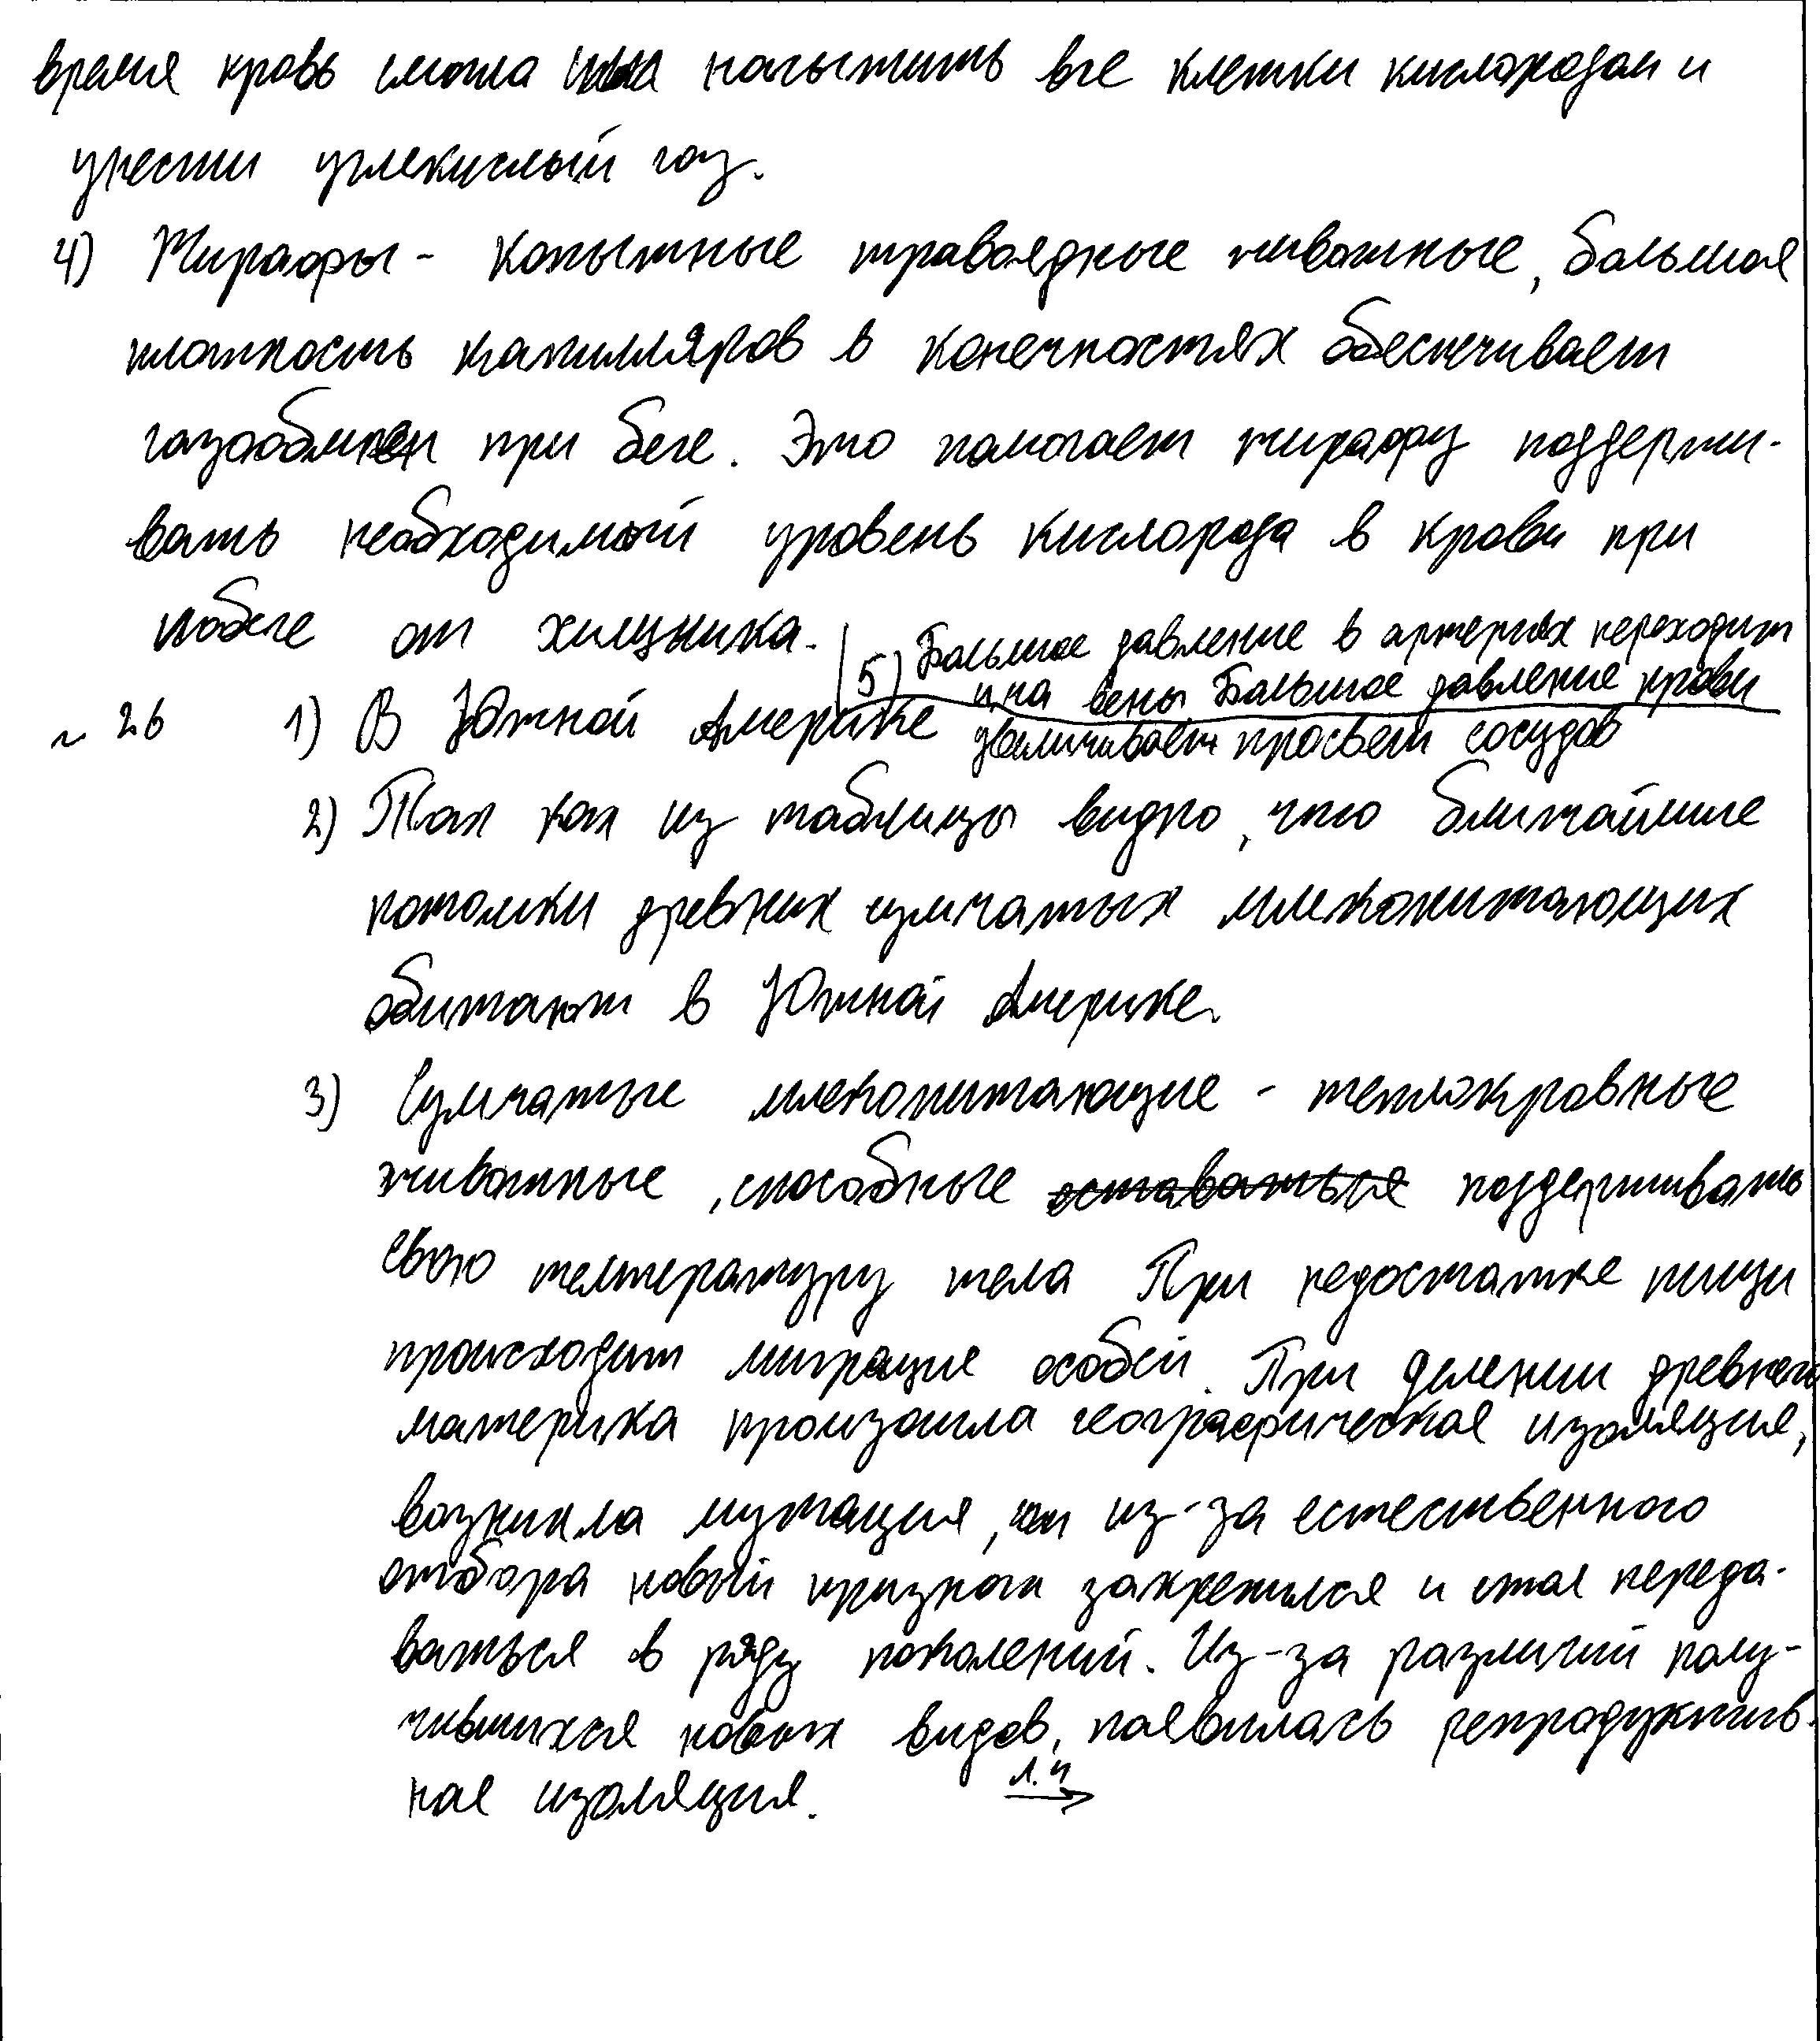 время кровь смогла насытить все клетки кислородом и
унести углекислый газ.
4) Жирафы - копытные травоядные животные, большая
плотность капилляров в конечностях обеспечивает
газообмен при беге. Это помогает жирафу поддержи-
вать необходимый уровень кислорода в крови при
побеге от хищника.
5) Большое давление в артериях переходит
и на вены Большое давление крови
увеличивает просвет сосудов
~ 26 1) В Южной Америке
2) Так как из таблицы видно, что ближайшие
потомки древних сумчатых млекопитающих
обитают в Южной Америке.
3) Сумчатые млекопитающие - теплокровные
животные, способные оставаться поддерживать
свою температуру тела При недостатке пищи
происходит миграция особей. При делении древнего
материка произошла географическая изоляция,
возникла мутация, из-за естественного
отбора новый признак закрепился и стал переда-
ваться в ряду поколений. Из-за различий полу-
чившихся новых видов, появилась репродуктив-
ная изоляция. л. 4